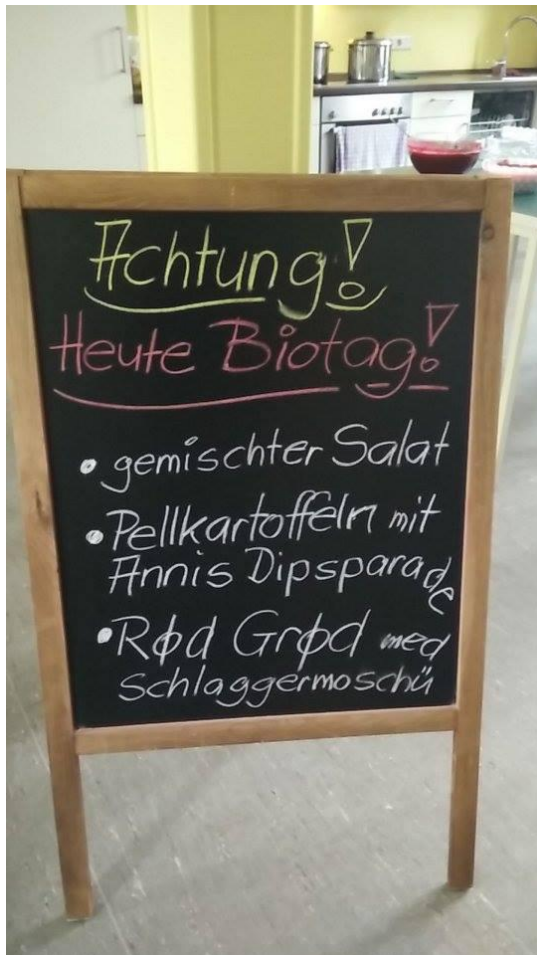 Achtung!
Heute Biotag!
• gemischter Salat
• Pellkartoffeln mit
Annis Dipsparade
• Rød Grød med
Schlaggermoschü